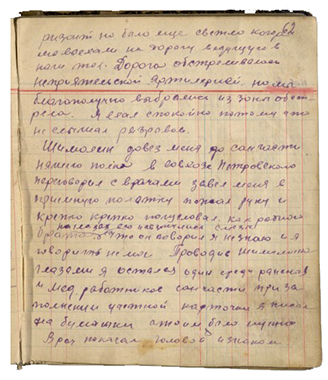 62
ризонт но было еще светло когда
мы выехали на дорогу ведущую в
наш тыл. Дорога обстреливалась
неприятельской артилерией, но мы
благополучно выбрались из зоны обст-
рела. Я ехал спокойно потому что
не слышал разрывов.
Шимолин довез меня до санчасти
нашего полка в совхозе Петровского
переговорил с врачами завел меня в
приемную палатку пожал руку и
крепко крепко поцеловал, как родного
брата на глазах его навернулись слезы
Что он говорил я не знаю и я
говорить не мог Проводив Шимолина
глазами я остался один среди раненых
и мед работников санчасти при за-
полнении учетной карточки я писал
на бумажки а потом было мутно
Врач показал головой и знаком